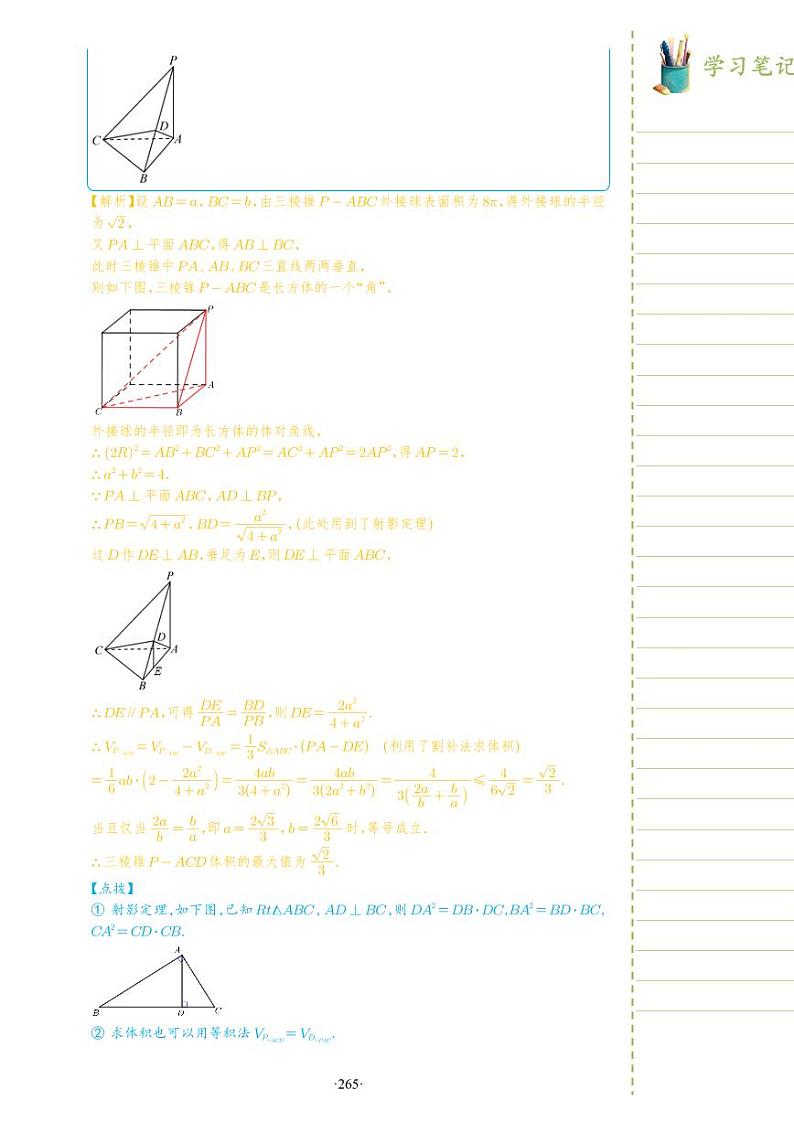 学习笔记
P
C
D
A
B
【解析】设 AB=a, BC=b,由三棱锥 P-ABC 外接球表面积为 8π,得外接球的半径
为√2,
又 PA⊥平面 ABC,得 AB⊥BC,
此时三棱锥中 PA、AB、BC 三直线两两垂直,
则如下图,三棱锥 P-ABC 是长方体的一个“角”,
P
A
C
B
外接球的半径即为长方体的体对角线,
∴(2R)²=AB²+BC²+AP²=AC²+AP²=2AP²,得 AP=2,
∴a²+b²=4.
∵PA⊥平面 ABC, AD⊥BP,
∴PB=√(4+a²), BD=a²/√(4+a²), (此处用到了射影定理)
过 D 作 DE⊥AB,垂足为 E,则 DE⊥平面 ABC,
P
D
C
A
E
B
∴DE∥PA,可得 DE/PA=BD/PB,则 DE=2a²/(4+a²).
∴V_{P-ACD}=V_{P-ABC}-V_{D-ABC}=1/3 S△ABC·(PA-DE) (利用了割补法求体积)
=1/6 ab·(2-2a²/(4+a²))=4ab/3(4+a²)=4ab/3(2a²+b²)=4/3(2a/b+b/a)≤4/6√2=√2/3.
当且仅当 2a/b=b/a,即 a=2√3/3, b=2√6/3 时,等号成立.
∴三棱锥 P-ACD 体积的最大值为 √2/3.
【点拨】
① 射影定理,如下图,已知 Rt△ABC, AD⊥BC,则 DA²=DB·DC,BA²=BD·BC,
CA²=CD·CB.
A
B
D
C
② 求体积也可以用等积法 V_{P-ACD}=V_{D-PAC}.
·265·